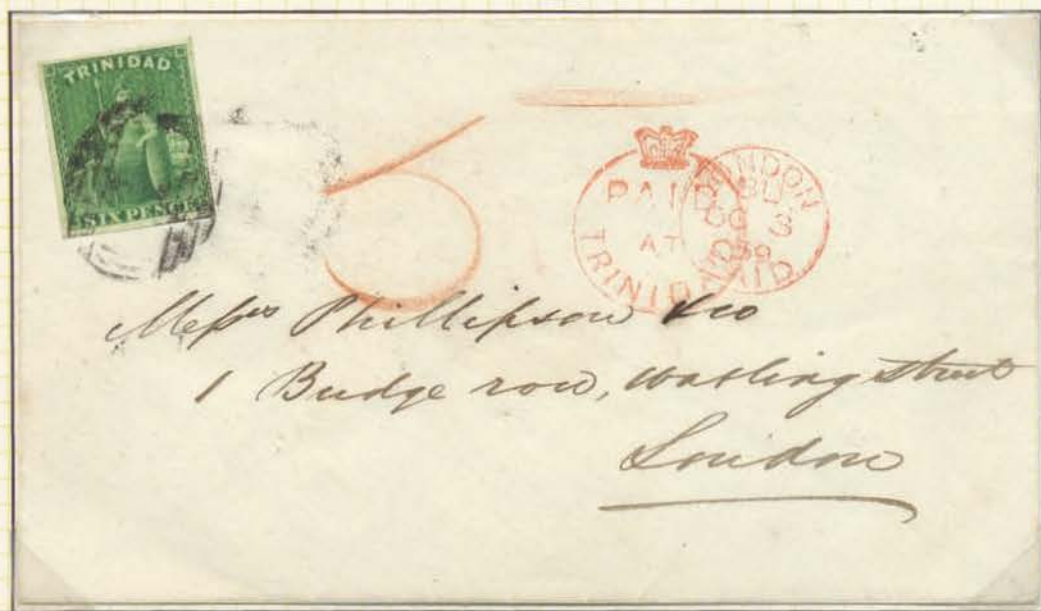 TRINIDAD
SIX PENCE
5
PAID
AT
TRINIDAD
LONDON
BU
OC 3
59
PAID
Messrs Phillipson & Co
1 Budge row, Watling Street
London